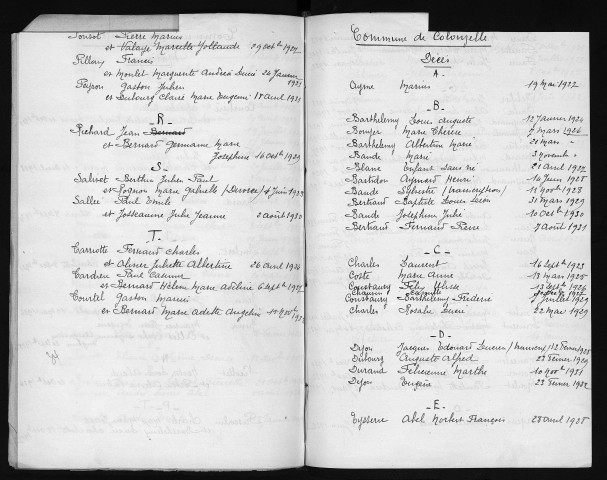 Ponsot Pierre Marius
et Valaye Marcelle Yollande 29 Octbre 1927
Pillay Francis
et Montet Marguerite Andrea Lucie 24 Janvier 1921
Peyron Gaston Julien
et Dubourg Claire Marie Eugénie 18 Avril 1931
R
Richard Jean Bernard
et Bernard Germaine Marie
Joséphine 16 Octbre 1929
S
Salivet Berthin Julien Paul
et Pognon Marie Gabrielle (Divorce) 4 Juin
Sallée Paul Emile
et Josseaume Julie Jeanne 2 août 1930
T
Tarriotte Fernand Charles
et Olivier Juliette Albertine 26 Avril 1924
Tardieu Paul Casimir
et Bernard Hélène Marie Adeline 6 Septbre
Tourtel Gaston Marius
et Bernard Marie Odette Angeline
Commune de Colonzelle
Décès
A
Ayme Marius 19 Mai 1922
B
Barthelemy Louis Auguste 12 Janvier 1924
Bouyer Marie Thérèse 7 Mars 1926
Barthelemy Albertine Marie 21 Mars "
Bande Marie 3 Novembre "
Blanc Enfant sans vie 21 Avril 1927
Bastidon Aymard Henri 14 Juin 1928
Bande Sylvestre (transcription) 15 Novbre 1928
Bertrand Baptiste Louis Léon 31 Mars 1929
Bande Joséphine Julie 10 Octbre 1930
Bertrand Fernand Pierre 7 Août 1931
C
Charles Laurent 16 Septbre 1923
Coste Marie Anne 13 Mars 1925
Constauty Félix Ulysse 13 Septbre 1926
Chauvin
Constauty Barthélemy Frédéric 7 Juillet 1929
Charles Rosalie Lucie 22 Mai 1929
D
Dyon Jacques Edouard Lucien (transcon) 12 Février 1925
Dubourg Auguste Alfred 22 Février 1929
Durand Félicienne Marthe 10 Novbre 1931
Dyon Eugène 23 Février 1932
E
Eysserie Abel Norbert François 28 Avril 1925